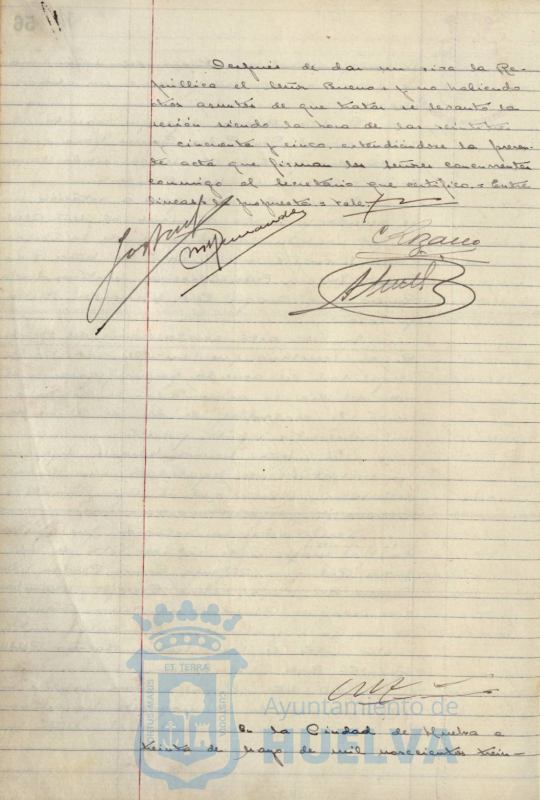 Después de dar un viva la Re-
pública el Señor Bueno, y no habiendo
otros asuntos de que tratar se levantó la
sesión siendo la hora de las veintitrés
y cincuenta y cinco, extendiéndose la presen-
te acta que firman los señores concurrentes
conmigo el Secretario que certifico.= Entre
lineas= la propuesta= Vale=
Hernandez
Lozano
ET TERRÆ
PORTUS MARIS
CUSTODIA
Ayuntamiento de
HUELVA
En la Ciudad de Huelva a
treinta de Mayo de mil novecientos trein-